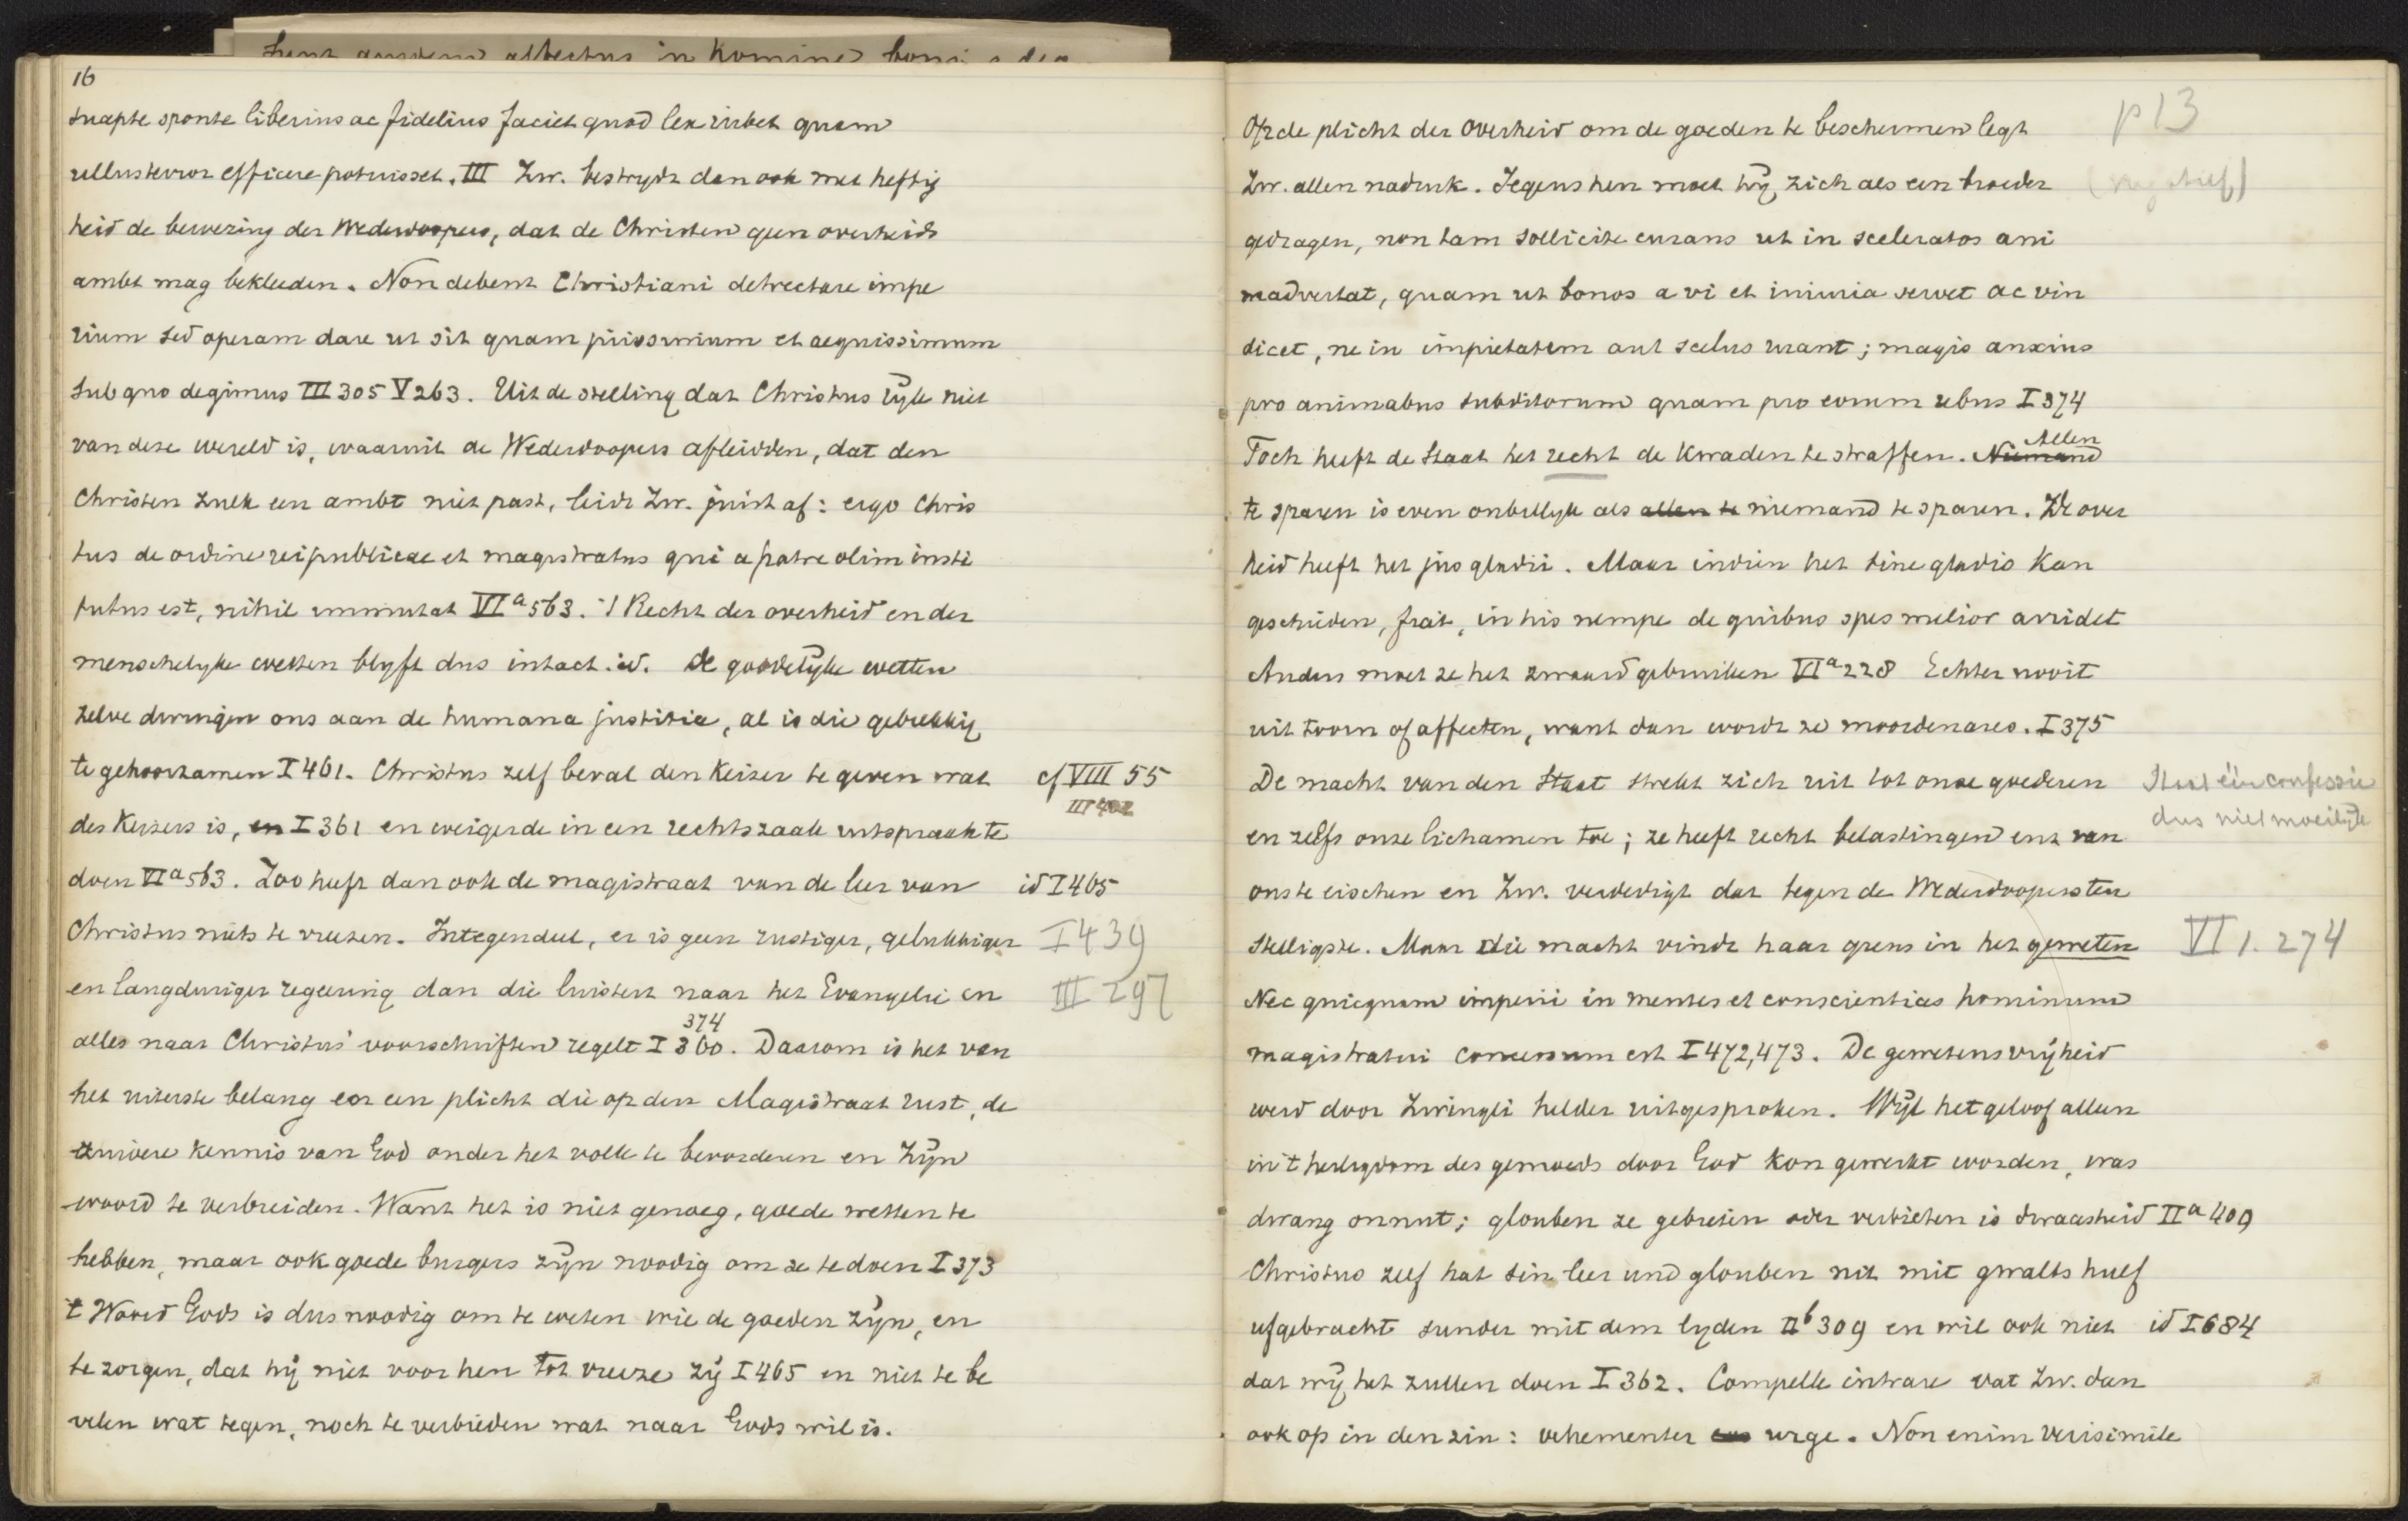 16
suapte sponte liberius ac fidelius faciet quod lex iubet quam
ullus terror efficere potuisset. III Zw. bestrydt dan ook met heftig
heid de bewering der Wederdoopers, dat de Christen geen overheids
ambt mag bekleeden. Non debent Christiani detrectare impe
rium sed operam dare ut sit quam piissimum et aequissimum
sub quo degimus III 305 V 263. Uit de stelling dat Christus ryk niet
van deze wereld is, waaruit de Wederdoopers afleidden, dat den
Christen zulk een ambt niet past, leidt Zw. juist af: ergo Chris
tus de ordine reipublicae et magistratus qui a patre olim insti
tutus est, nihil immutat VI a 563. 't Recht der overheid en der
menschelyke wetten blyft dus intact. id. de goddelyke wetten
zelve dwingen ons aan de humana justitia, al is die gebrekkig,
te gehoorzamen I 461. Christus zelf beval den Keizer te geven wat
cf VIII 55
III 402
des Keizers is, en I 361 en weigerde in een rechtszaak uitspraak te
doen VI a 563. Zoo heeft dan ook de magistraat van de leer van
id I 465
Christus niets te vreezen. Integendeel, er is geen rustiger, gelukkiger
I 439
en langduriger regeering dan die luistert naar het Evangelie en
III 297
374
alles naar Christus' voorschriften regelt I 360. Daarom is het van
het uiterste belang en een plicht die op den Magistraat rust, de
zuivere kennis van God onder het volk te bevorderen en Zyn
woord te verbreiden. Want het is niet genoeg, goede wetten te
hebben, maar ook goede burgers zyn noodig om ze te doen I 373
't Woord Gods is dus noodig om te weten wie de goeden zyn, en
te zorgen, dat hij niet voor hen tot vreeze zij I 465 en niet te be
velen wat tegen, noch te verbieden wat naar Gods wil is.
Op de plicht der Overheid om de goeden te beschermen legt
p 13
Zw. allen nadruk. Jegens hen moet hij zich als een broeder
gedragen, non tam sollicite curans ut in sceleratos ani
madvertat, quam ut bonos a vi et iniuria servet ac vin
dicet, ne in impietatem aut scelus ruant; magis anxius
pro animabus subditorum quam pro eorum rebus I 374
Allen
Toch heeft de Staat het recht de Kwaden te straffen. Niemand
te sparen is even onbillyk als allen te niemand te sparen. De over
heid heeft het jus gladii. Maar indien het sine gladio kan
geschieden, fiat, in his nempe de quibus spes melior arridet
Anders moet ze het zwaard gebruiken VI a 228 Echter nooit
uit toorn of affecten, want dan wordt ze moordenares. I 375
De macht van den Staat strekt zich uit tot onze goederen
Staat één confessie
dus niet moeilyk
en zelfs onze lichamen toe; ze heeft recht belastingen enz van
ons te eischen en Zw. verdedigt dat tegen de Wederdoopers ten
stelligste. Maar die macht vindt haar grens in het geweten
VI 1. 274
Nec quicquam imperii in mentes et conscientias hominum
magistratui concessum est I 472,473. De gewetensvrijheid
werd door Zwingli helder uitgesproken. Wijl het geloof alleen
in 't heiligdom des gemoeds door God kon gewerkt worden, was
dwang onnut; glouben ze gebieten oder verbieten is dwaasheid II a 409
Christus zelf hat sin leer und glouben nit mit gwalts huef
ufgebracht sunder mit dem lyden II b 309 en wil ook niet
id I 684
dat wij het zullen doen I 362. Compelle intrare vat Zw. dan
ook op in den zin: vehementer urge. Non enim verisimile